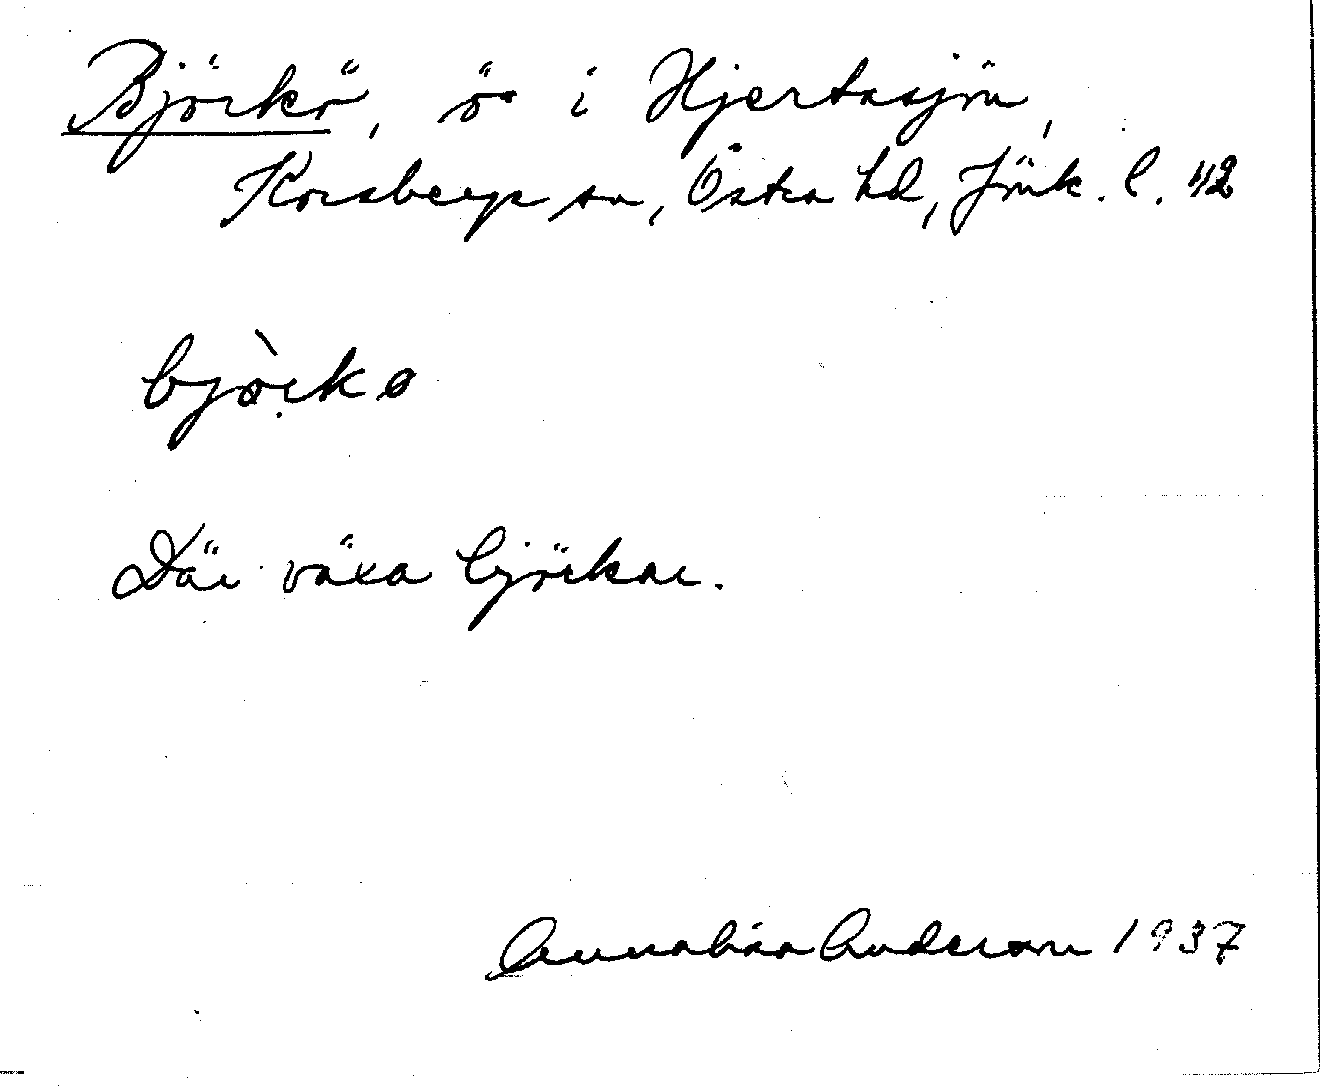 Björkö, ö i Hjertasjön,
Korsberga sn, Östra hd, Jönk. l. 42
bjò̤rkø
Där växa björkar.
Annalisa Anderson 1937